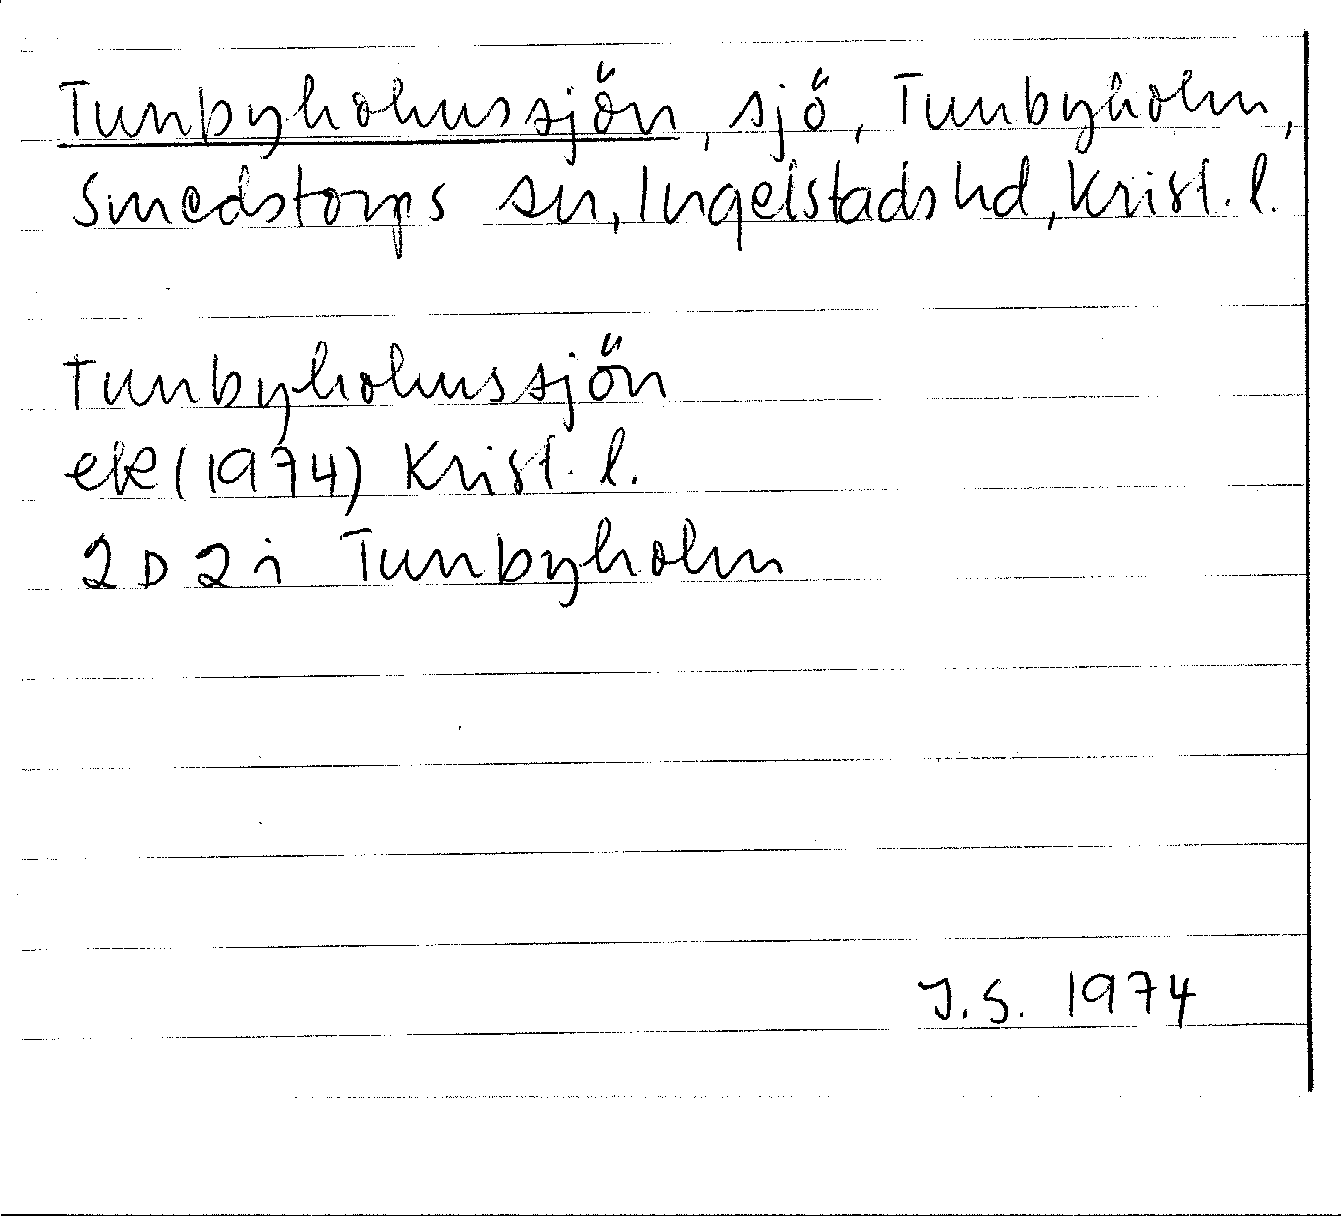 Tunbyholmssjön, sjö, Tunbyholm,
Smedstorps sn, Ingelstads hd, Krist. l.
Tunbyholmssjön
ek (1974) Krist. l.
2D 2i Tunbyholm
J.S. 1974